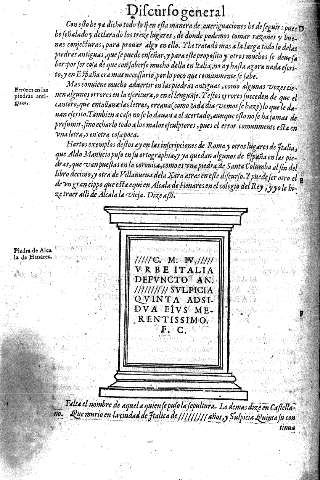 Discurso general
Con esto he ya dicho todo lo q̃ en esta manera de aueriguaciones he de seguir: pues
he señalado y declarado los treze lugares, de donde podemos tomar razones y bue-
nas conjecturas, para prouar algo en ello. He tratado mas a la larga todo lo de las
piedras antiguas, que se puede enseñar, y para este proposito y otros muchos se de sea
ber por ser cosa de que cõ saberse mucho della en Italia, no ay hasta agora nada escri-
to, y en España era mas necessario, por lo poco que comunmente se sabe.
Errores en las
piedras anti-
guas.
Mas conuiene mucho aduertir en las piedras antiguas, como algunas vezes tie-
nen algunos errores en la escritura, o en el lenguaje. Y estos errores suceden de que el
cantero, que entallaua las letras, erraua, como cada dia vemos se haze, lo que le da-
uan escrito. Tambien a caso no se lo dauan a el acertado, aunque esto no se ha mas de
presumir, sino echarlo todo a los malos esculptores, pues el error comunmente esta en
vna letra, o en otra cosa poca.
Hartos exemplos desto ay en las inscripciones de Roma y otros lugares de Italia,
que Aldo Manucio puso en su ortographia, y ya quedan algunos de España en las pie-
dras, que van puestas en la coronica, como es vna piedra de Santa Columba al fin del
libro decimo, y otra de Villanueua dela Xara atras en este discurso. Y puede ser otro el
de vn gran cippo que esta aqui en Alcala de Henares en el colegio del Rey, y yo le hi-
ze traer alli de Alcala la vieja. Dize assi.
Piedra de Alca
la de Henares.
///// C. M. IV. /////
VRBE ITALIA
DEFVNCTO AN.
///////// SVLPICIA
QVINTA ADSI-
DVA EIVS ME-
RENTISSIMO.
F. C.
Falta el nombre de aquel a quien se puso la sepultura. Lo demas dize en Castella-
no. Que murio en la ciudad de Italica de ///////// años, y Sulpicia Quinta su con
tinua